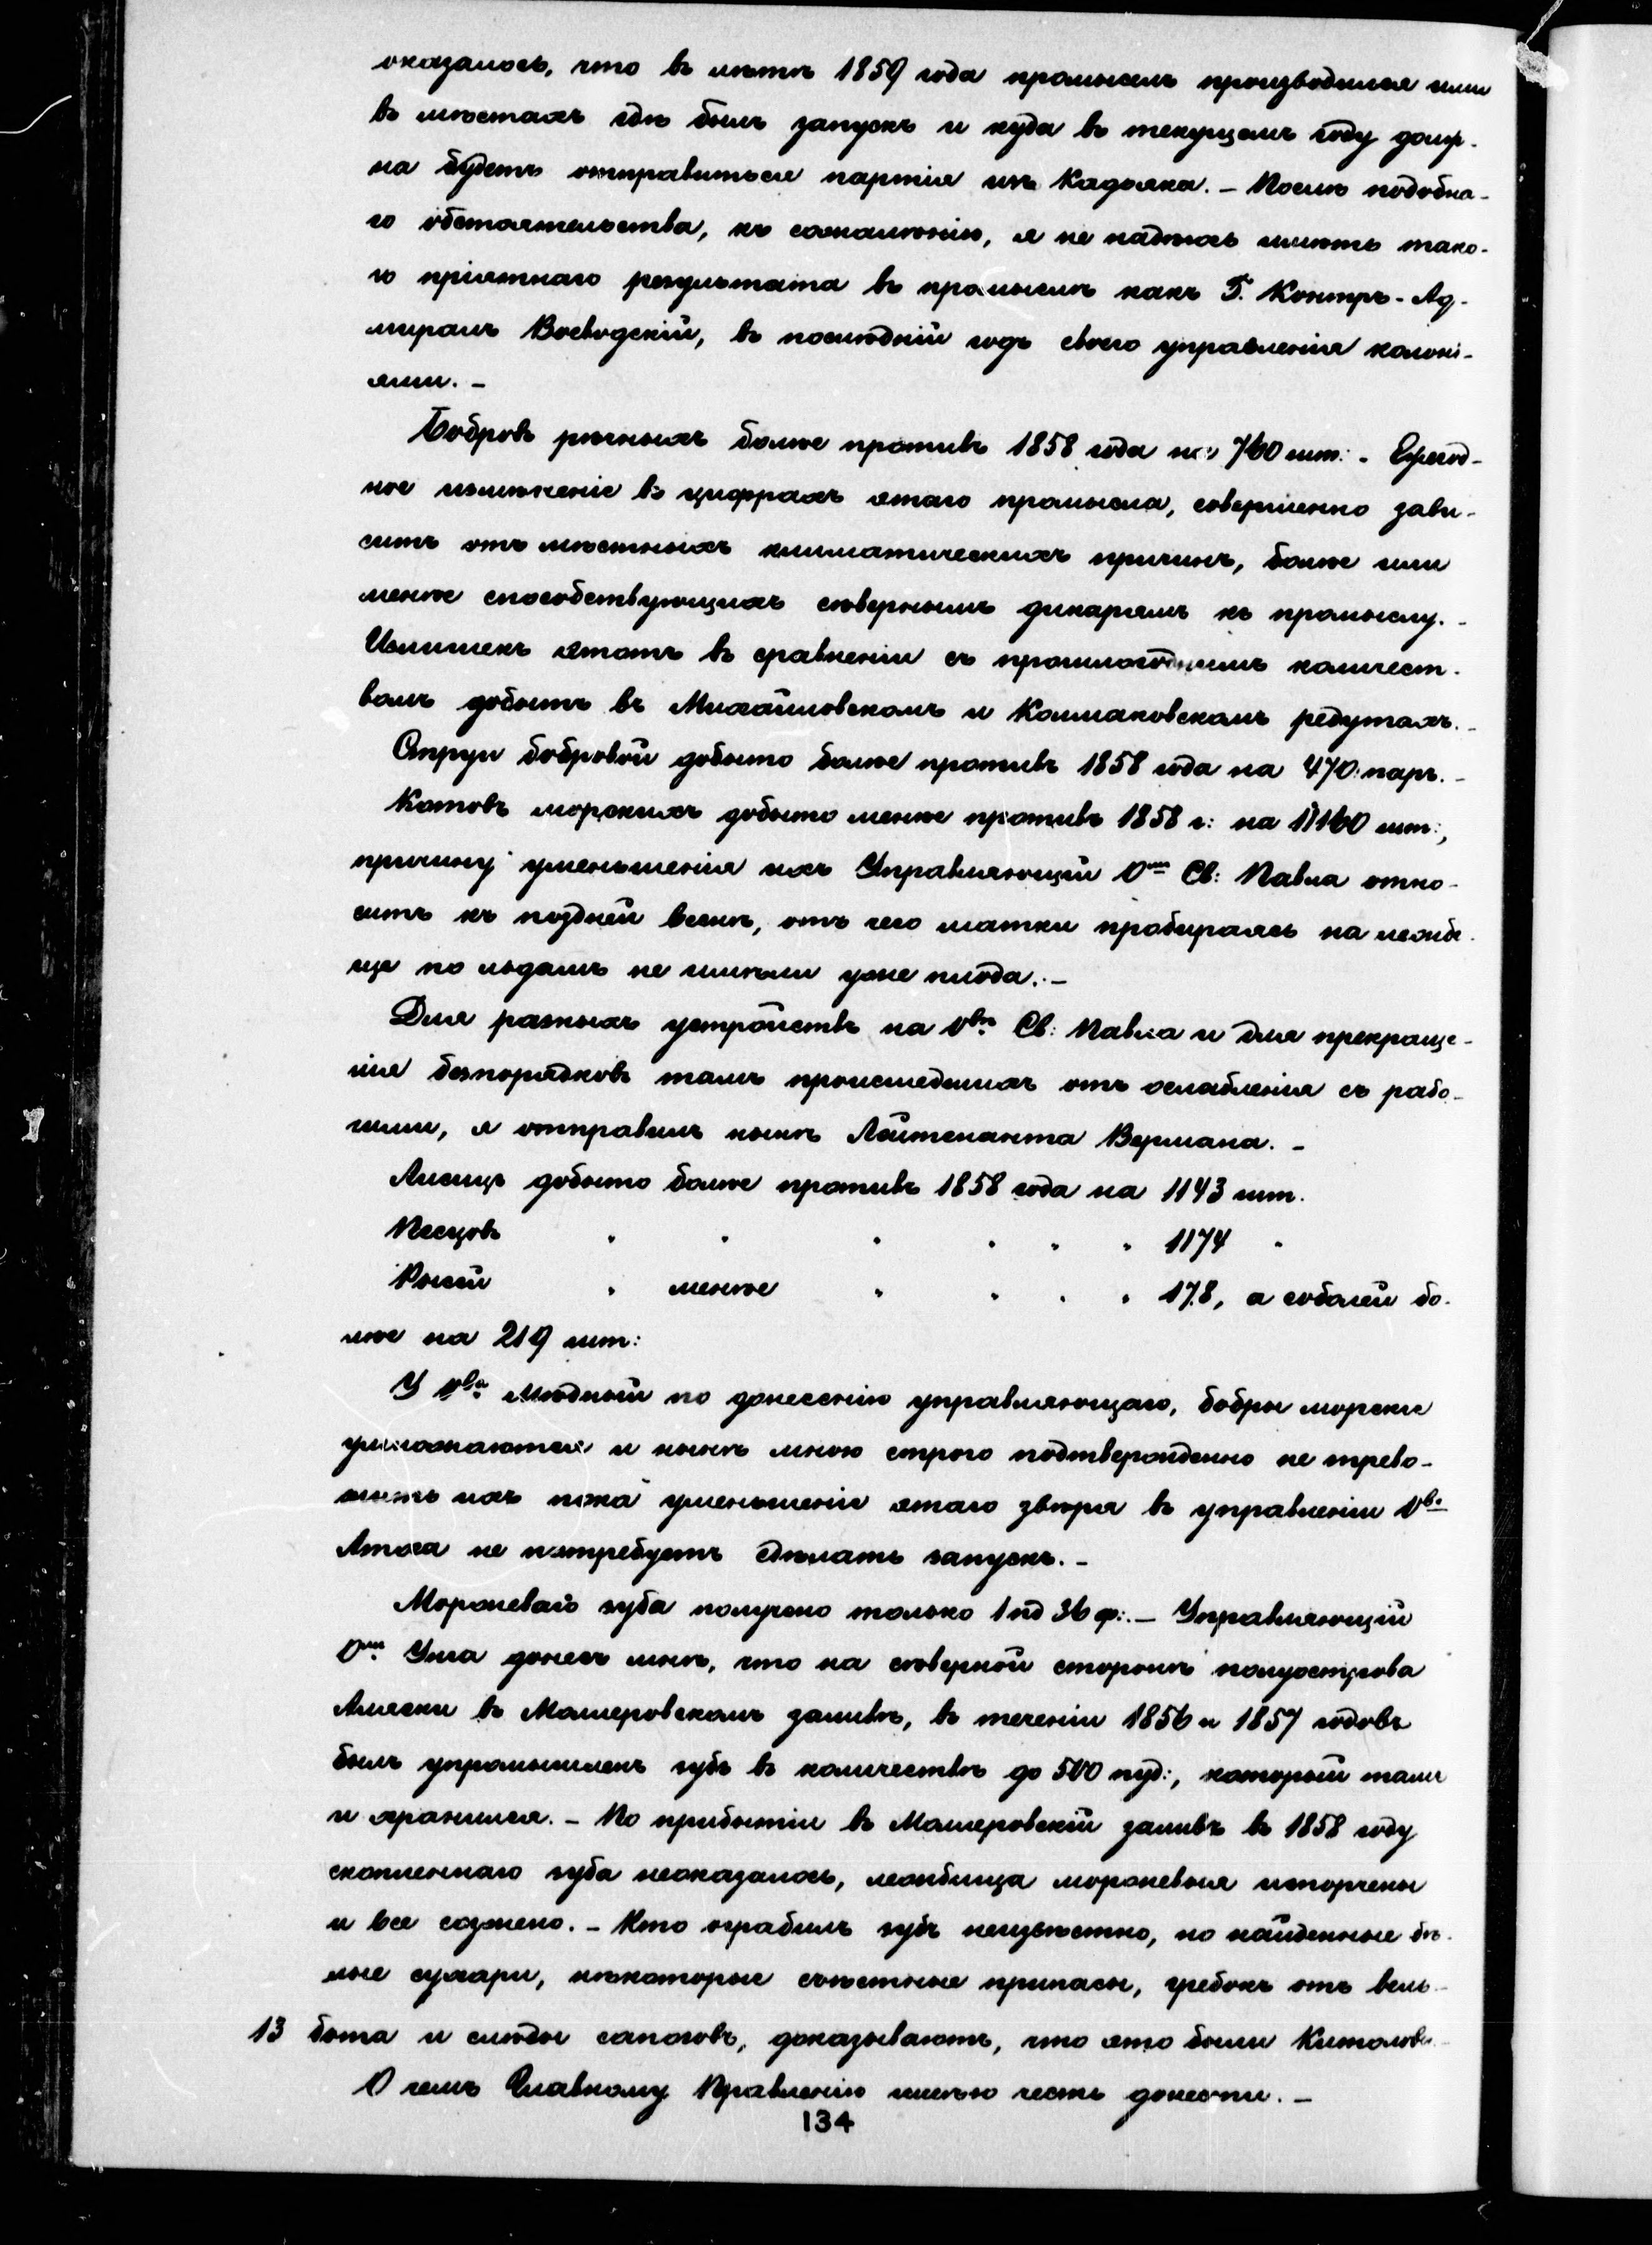 оказалось, что въ лѣтѣ 1859 года промыселъ производился ими
въ мѣстахъ гдѣ былъ запускъ и куда въ текущемъ году долж-
на будетъ отправиться партія изъ Кадьяка. – Послѣ подобна-
го обстоятельства, къ сожалѣнію, я не надѣюсь имѣть тако-
го пріятнаго результата въ промыслѣ какъ Г. Контръ-Ад-
миралъ Воеводскій, въ послѣдній годъ своего управленія колоні-
ями. –
Бобровъ рѣчныхъ болѣе противъ 1858 года на 760 шт: - Ежегод-
ное измѣненіе въ цифрахъ этаго промысла, совершенно зави-
ситъ отъ мѣстныхъ климатическихъ причинъ, болѣе или
менѣе способствующихъ сѣвернымъ дикарямъ къ промыслу. -
Излишекъ этотъ въ сравненіи съ прошлогоднимъ количест-
вомъ добытъ въ Михайловскомъ и Колмаковскомъ редутахъ. -
Струи бобровой добыто болѣе противъ 1858 года на 470 паръ. -
Котовъ морскихъ добыто менѣе противъ 1858 г: на шт:,
причину уменьшенія ихъ Управляющій Св: Павла отно-
ситъ къ поздней веснѣ, отъ чего матки пробираясь на лежби-
ще по льдамъ не имѣли уже плода. –
Для разныхъ устройствъ на Овѣ Св: Павла и для прекраще-
нія безпорядковъ тамъ происшедшихъ отъ ослабленія съ рабо-
чими, я отправилъ нынѣ Лейтенанта Вермана. –
Лисицъ добыто болѣе противъ 1858 года на 1143 шт.
Песцовъ " " " " " " 1174 "
Рысей " менѣе " " " " 178, а соболей бо-
лѣе на 219 шт:
У Ова Мѣдный по донесенію управляющаго, бобры морскіе
умножаются и нынѣ мною строго подтверждено не трево-
жить ихъ пока уменьшеніе этаго звѣря въ управленіи Ова
Атха не потребуетъ сдѣлать запускъ. –
Моржеваго зуба получено только 1 пд 36 ф:. – Управляющій
Унга донесъ мнѣ, что на сѣверной сторонѣ полуострова
Аляски въ Моллеровскомъ заливѣ, въ теченіи 1856 и 1857 годовъ
былъ упромышленъ зубъ въ количествѣ до 500 пуд:, который тамъ
и хранился. – По прибытіи въ Моллеровскій заливъ въ 1858 году
скопленнаго зуба неоказалось, лежбища моржевыя испорчены
и все сожжено. – Кто ограбилъ зубъ неизвѣстно, но найденные бѣ-
лые сухари, нѣкоторые съѣстные припасы, гребокъ отъ вель-
13 бота и слѣды сапоговъ, доказываютъ, что это были Китоловы. -
О чемъ Главному Правленію имѣю честь донести. –
134